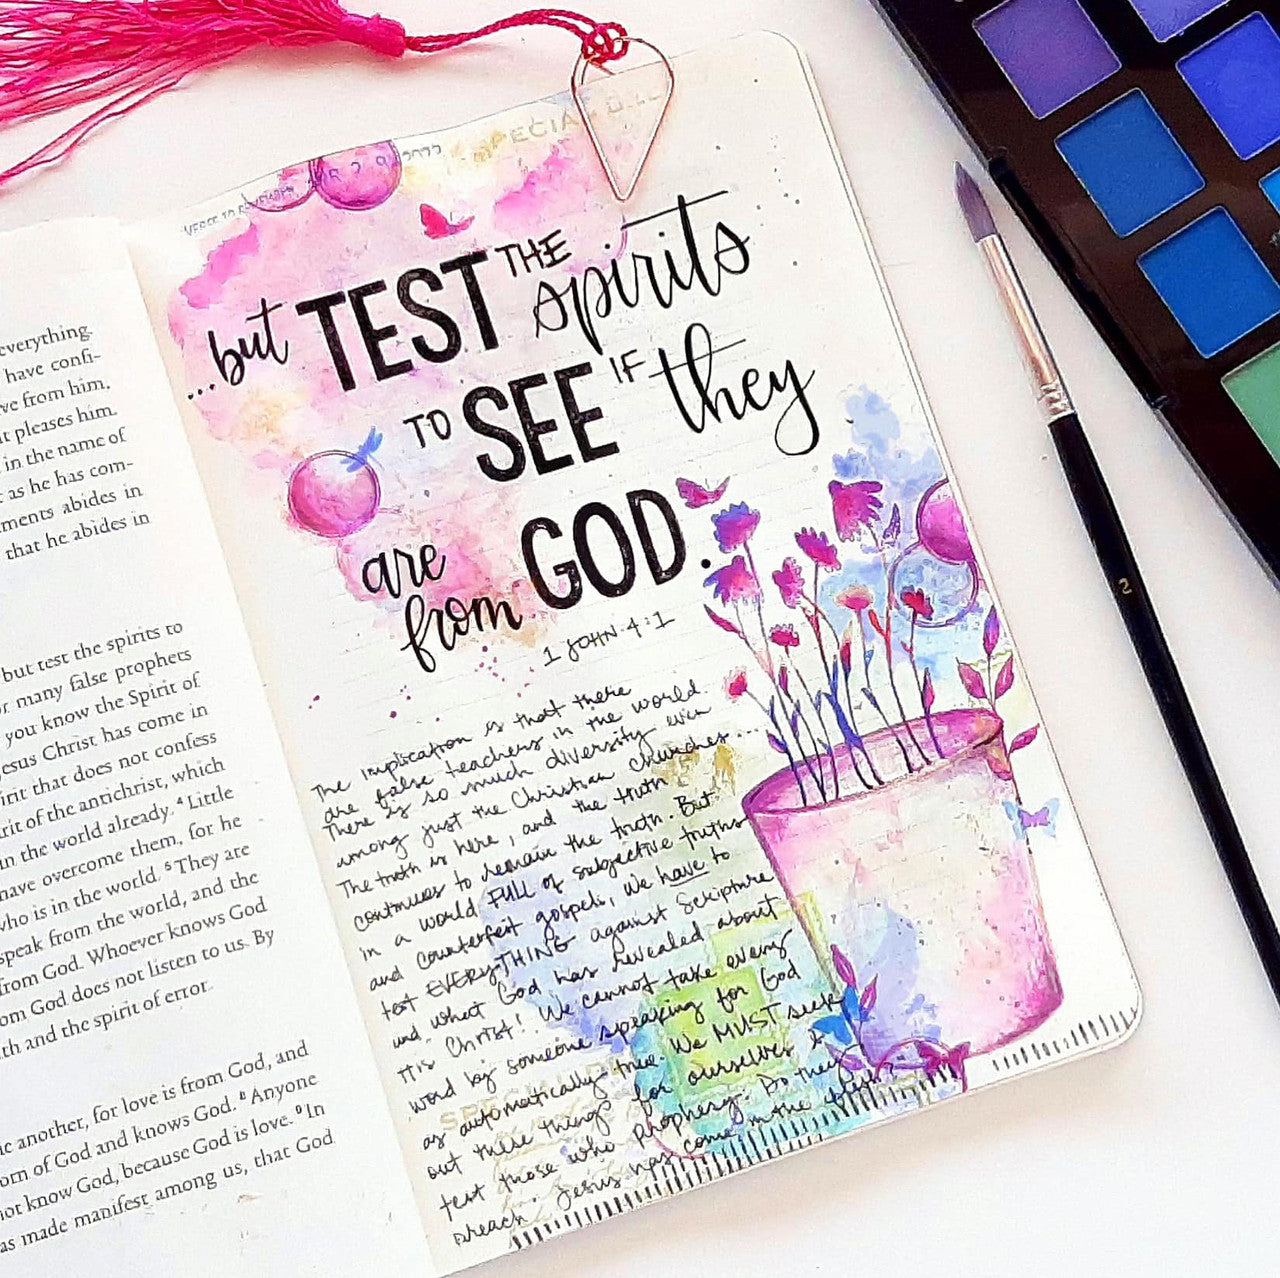 everything.
have confi-
ve from him,
it pleases him.
in the name of
as he has com-
ments abides in
that he abides in
but test the spirits to
r many false prophets
you know the Spirit of
esus Christ has come in
irit that does not confess
rit of the antichrist, which
in the world already. 4 Little
have overcome them, for he
who is in the world. 5 They are
speak from the world, and the
from God. Whoever knows God
om God does not listen to us. By
th and the spirit of error.
ic another, for love is from God, and
orn of God and knows God. 8 Anyone
not know God, because God is love. 9 In
as made manifest among us, that God
VERSE TO REMEMBER
SPECIAL
...but TEST THE spirits
TO SEE IF they
are from GOD.
1 JOHN 4:1
The implication is that there
are false teachers in the world.
There is so much diversity even
among just the Christian churches...
The truth is here, and the truth
continues to remain the truth. But
in a world FULL of subjective truths
and counterfeit gospels, we have to
test EVERYTHING against Scripture
and what God has revealed about
Christ! We cannot take every
word by someone speaking for God
as automatically true. We MUST seek
out these things for ourselves &
test those who prophecy. Do they
preach Jesus has come in the flesh?
2